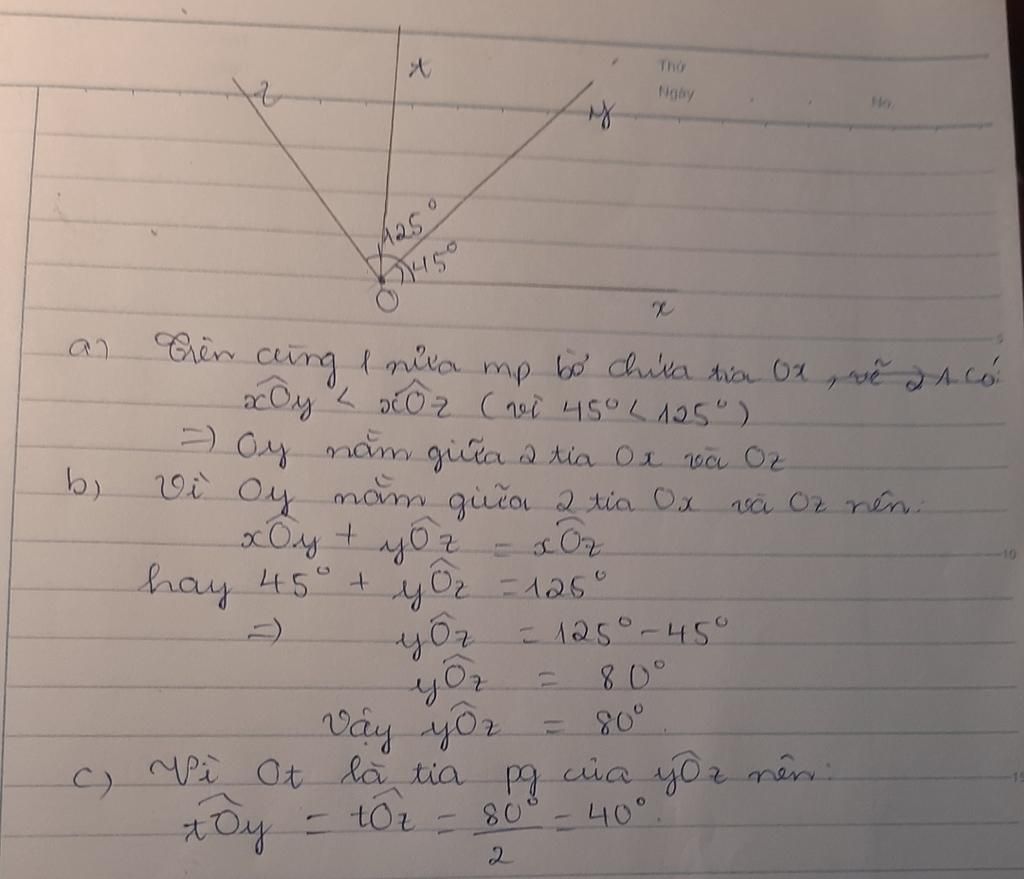 z
t
y
Thứ
Ngày
No.
125°
45°
O
x
a) Trên cùng 1 nửa mp bờ chứa tia Ox, có
xÔy < xÔz (vì 45° < 125°)
=) Oy nằm giữa 2 tia Ox và Oz
b) Vì Oy nằm giữa 2 tia Ox và Oz nên:
xÔy + yÔz = xÔz
hay 45° + yÔz = 125°
=) yÔz = 125° - 45°
yÔz = 80°
Vậy yÔz = 80°.
c) Vì Ot là tia pg của yÔz nên:
tÔy = tÔz = 80°/2 = 40°.
5
10
15